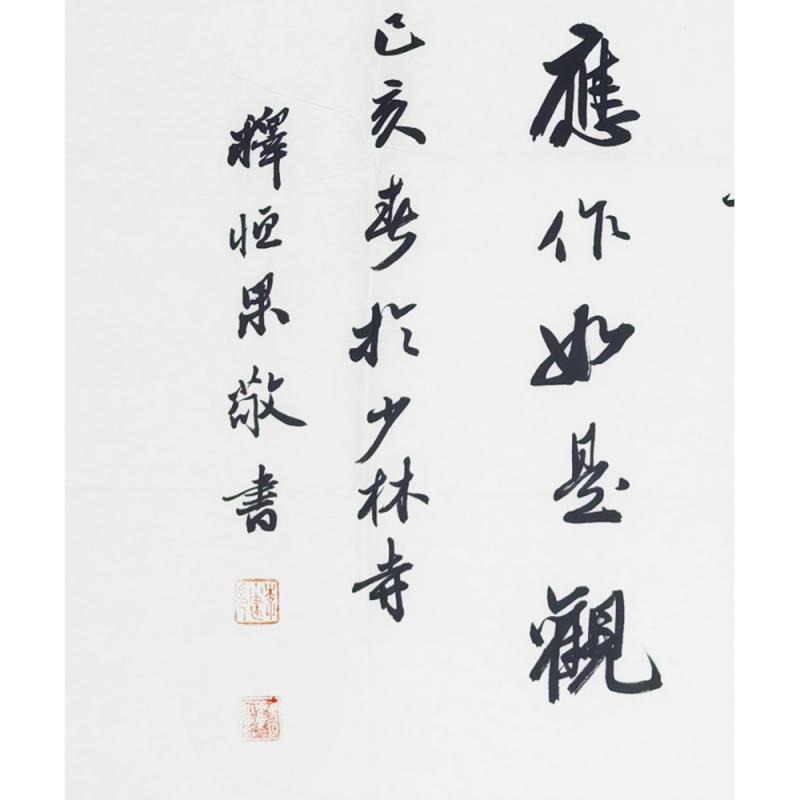 應作如是觀
己亥春於少林寺
釋恒果敬書